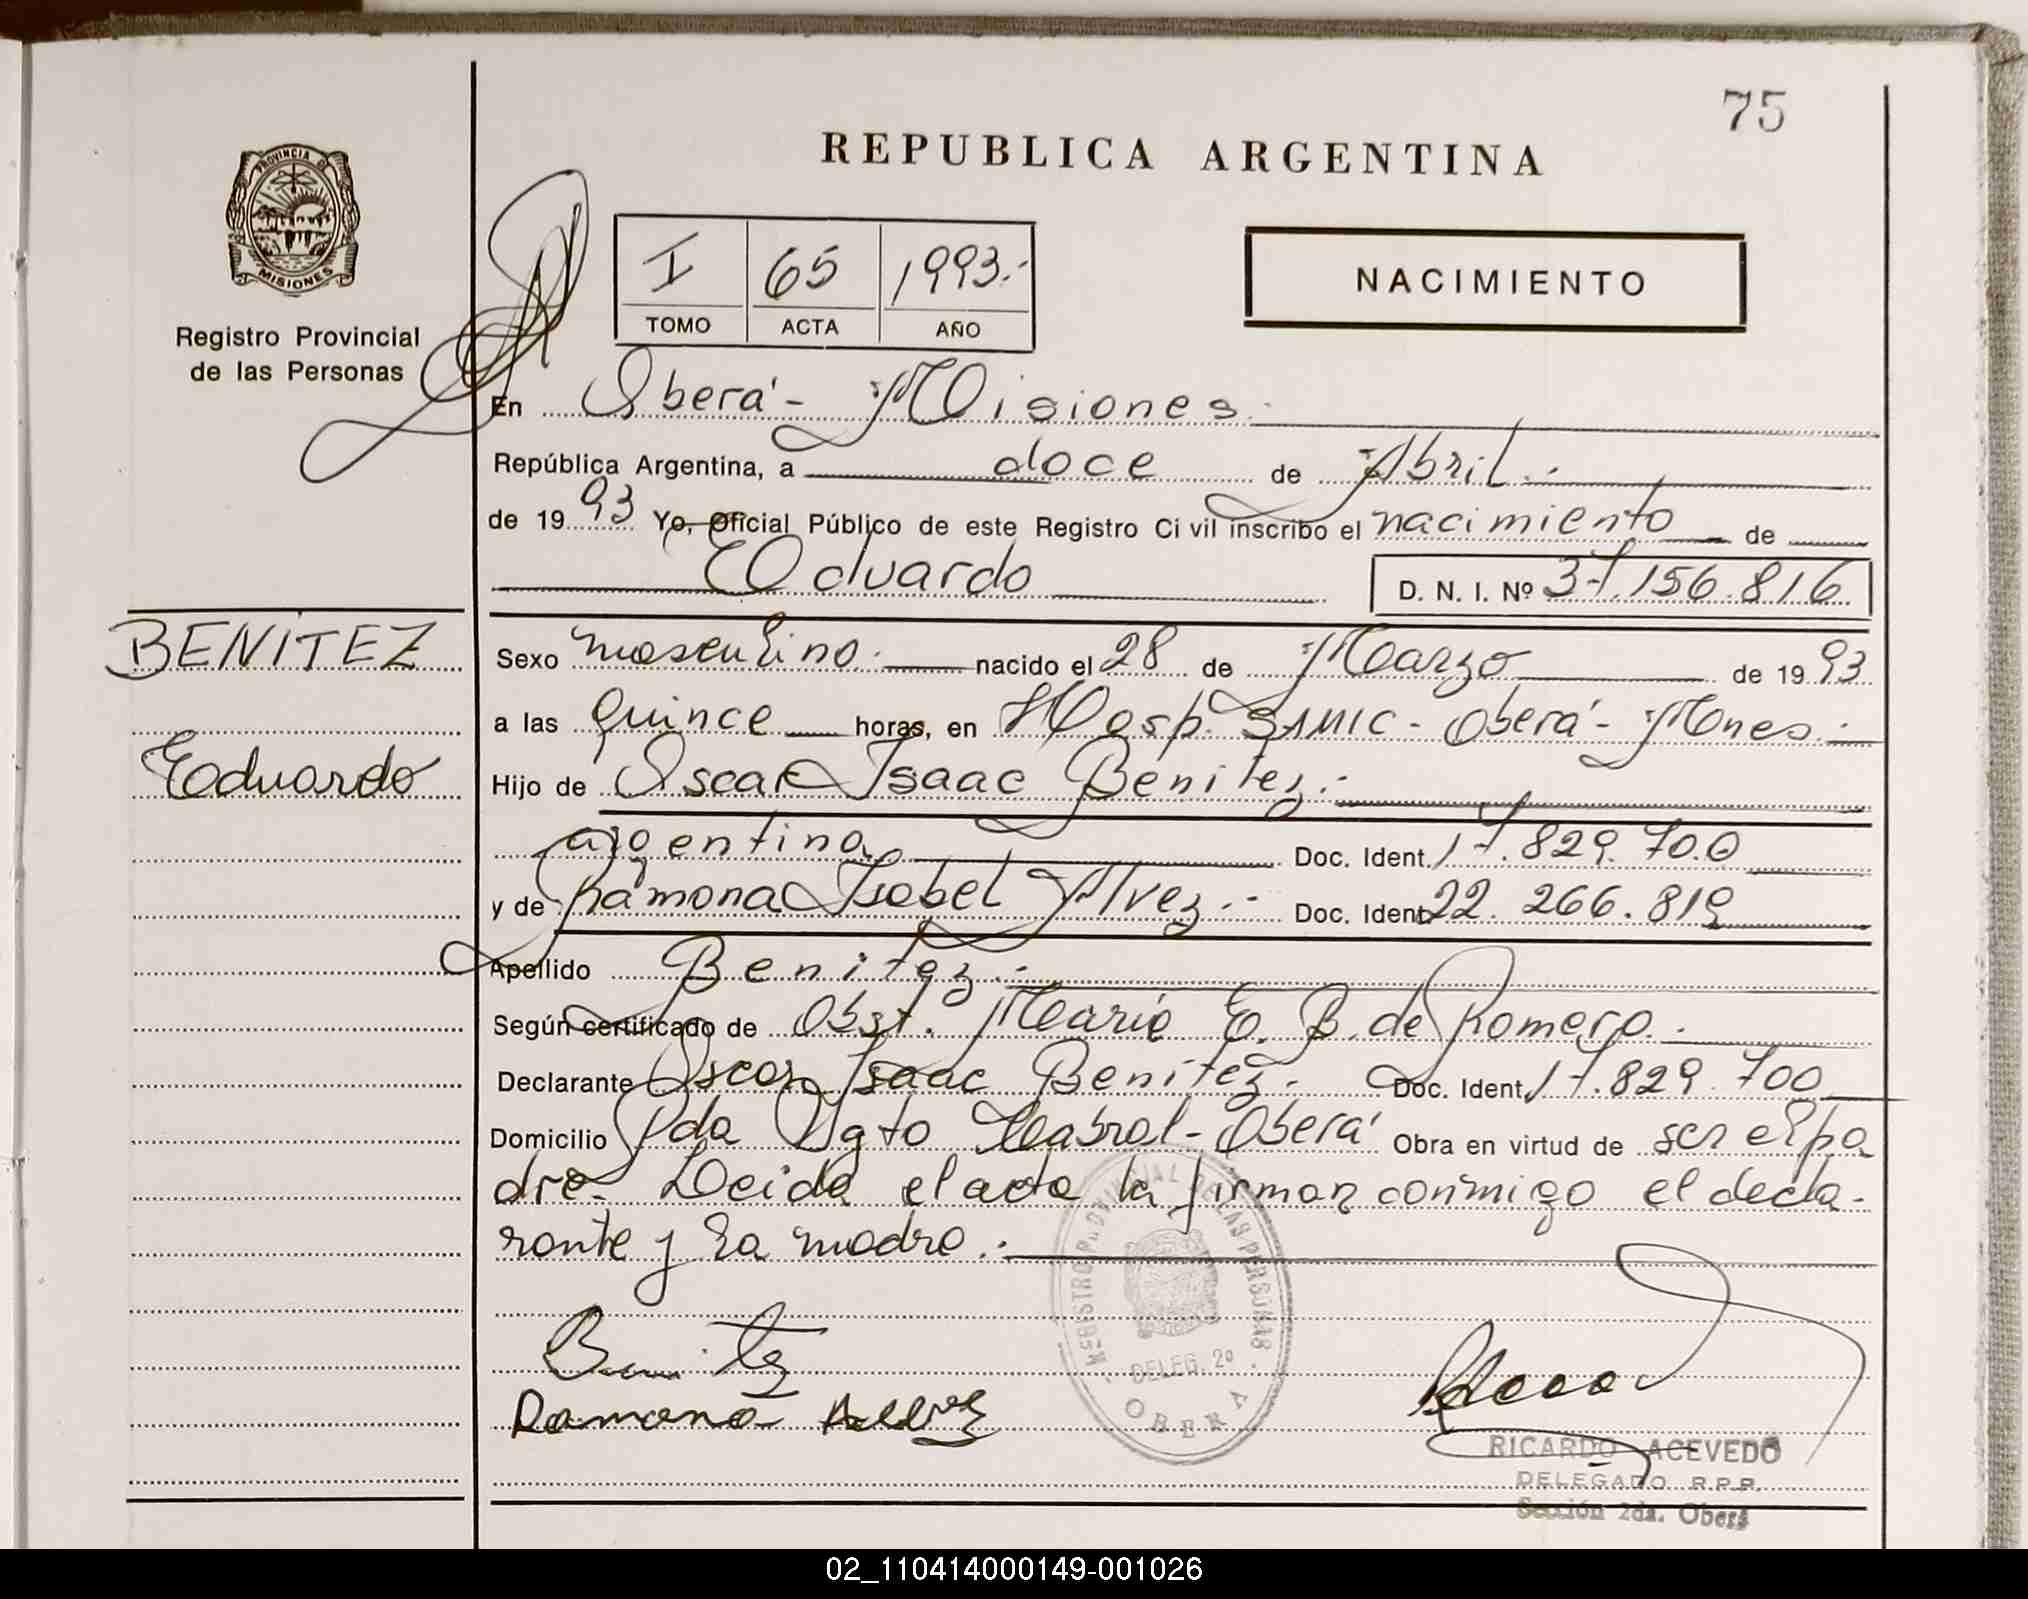 75
REPUBLICA ARGENTINA
PROVINCIA DE
MISIONES
Registro Provincial
de las Personas
I 65 1993.-
TOMO ACTA AÑO
NACIMIENTO
En Oberá - Misiones.-
República Argentina, a doce de Abril.-
de 19 93 Yo, Oficial Público de este Registro Civil inscribo el nacimiento de
Eduardo D. N. I. Nº 37.156.816
BENITEZ
Sexo masculino.- nacido el 28 de Marzo de 19 93
a las quince horas, en Hosp. SAMIC - Oberá - Mnes.-
Eduardo
Hijo de Oscar Isaac Benitez.-
argentina Doc. Ident. 17.829.700
y de Ramona Isabel Alvez.- Doc. Ident. 22.266.819
Apellido Benitez.-
Según certificado de Obst. Maria E. B. de Romero.-
Declarante Oscar Isaac Benitez.- Doc. Ident. 17.829.700
Domicilio Pda Sgto Cabral - Oberá Obra en virtud de ser el pa
dre. Leida el acta la firman conmigo el decla-
rante y la madre.-
REGISTRO PROVINCIAL DE LAS PERSONAS
DELEG. 2º
OBERA
Benitez
Ramona Alvez
RICARDO ACEVEDO
DELEGADO R.P.P.
Sección 2da. Oberá
02_110414000149-001026